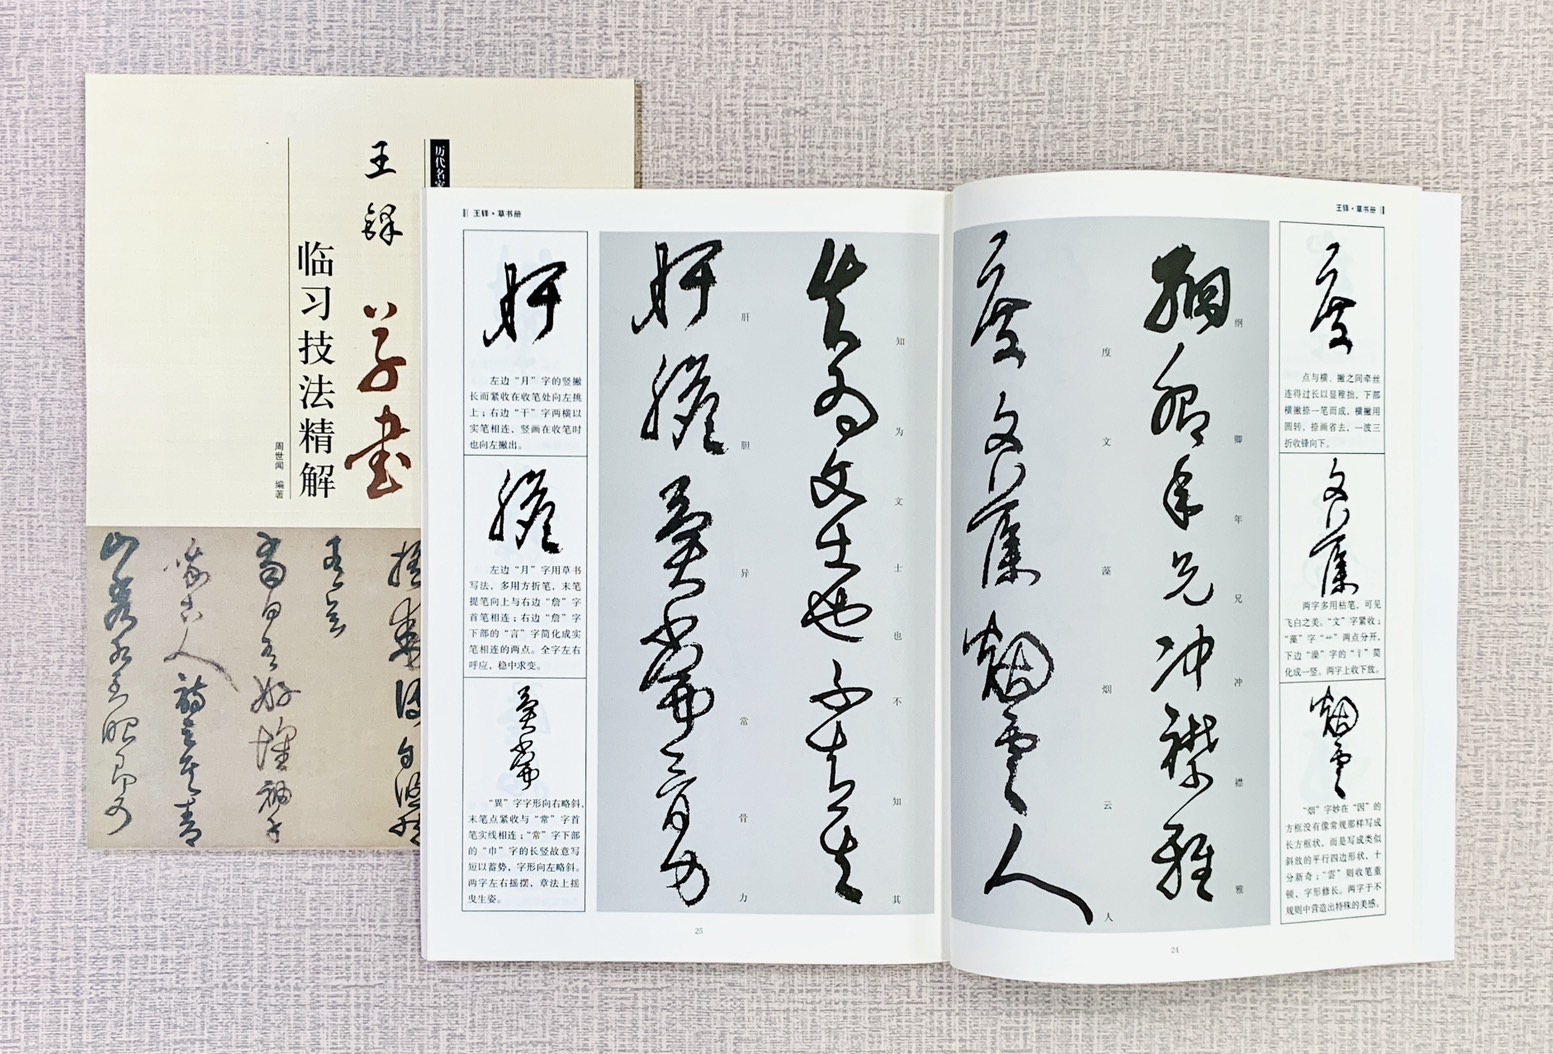 历代名家
王铎
草书
临习技法精解
周世闻 编著
王铎·草书册
点与横、撇之间牵丝
连得过长以显稚拙，下部
横撇捺一笔而成，横撇用
圆转，捺画省去，一波三
折收锋向下。
两字多用枯笔，可见
飞白之美。“文”字紧收；
“藻”字“艹”两点分开，
下边“澡”字的“氵”简
化成一竖。两字上收下放。
“烟”字妙在“因”的
方框没有像常规那样写成
长方框状，而是写成类似
斜放的平行四边形状，十
分新奇；“雲”则收笔重
顿，字形修长。两字于不
规则中营造出特殊的美感。
纲卿年兄冲襟雅
度文藻烟云人
24
王铎·草书册
知为文士也不知其
肝胆异常骨力
左边“月”字的竖撇
长而紧收在收笔处向左挑
上；右边“干”字两横以
实笔相连，竖画在收笔时
也向左撇出。
左边“月”字用草书
写法，多用方折笔，末笔
提笔向上与右边“詹”字
首笔相连；右边“詹”字
下部的“言”字简化成实
笔相连的两点。全字左右
呼应，稳中求变。
“異”字字形向右略斜，
末笔点紧收与“常”字首
笔实线相连；“常”字下部
的“巾”字的长竖故意写
短以蓄势，字形向左略斜。
两字左右摇摆，章法上摇
曳生姿。
25